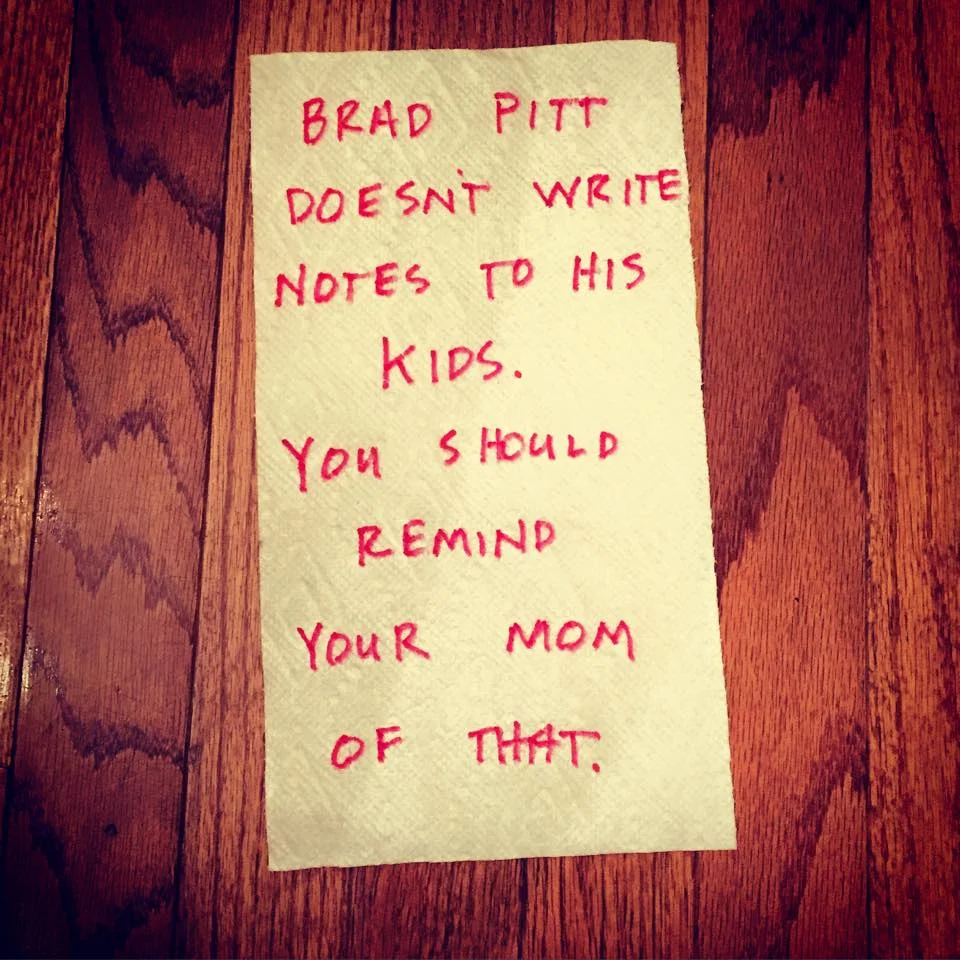 BRAD PITT
DOESN'T WRITE
NOTES TO HIS
KIDS.
YOU SHOULD
REMIND
YOUR MOM
OF THAT.